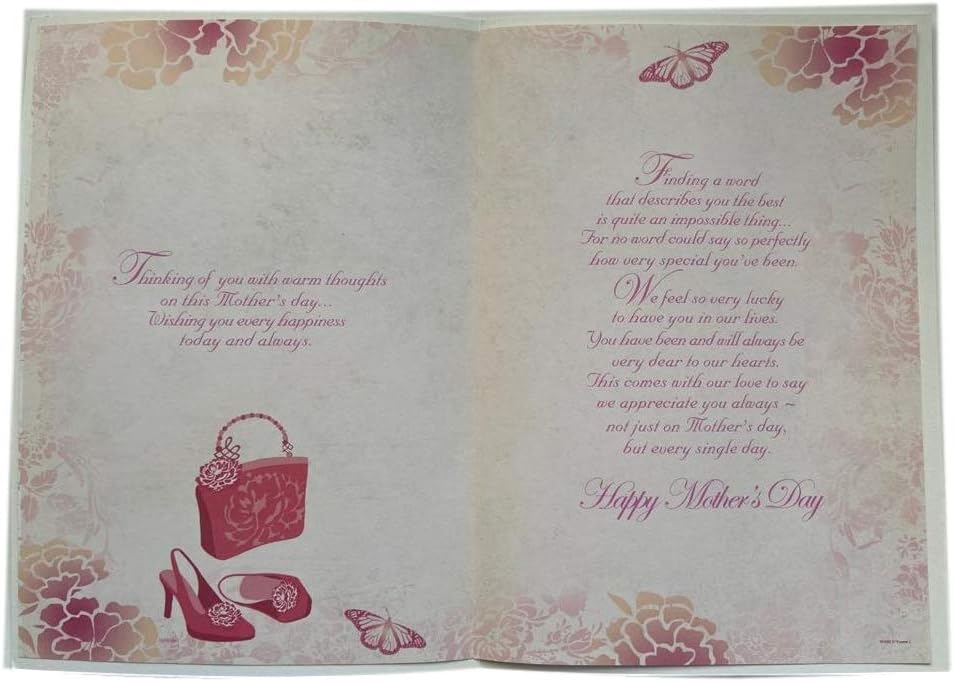 Thinking of you with warm thoughts
on this Mother's day...
Wishing you every happiness
today and always.
Finding a word
that describes you the best
is quite an impossible thing...
For no word could say so perfectly
how very special you've been.
We feel so very lucky
to have you in our lives.
You have been and will always be
very dear to our hearts.
This comes with our love to say
we appreciate you always ~
not just on Mother's day,
but every single day.
Happy Mother's Day